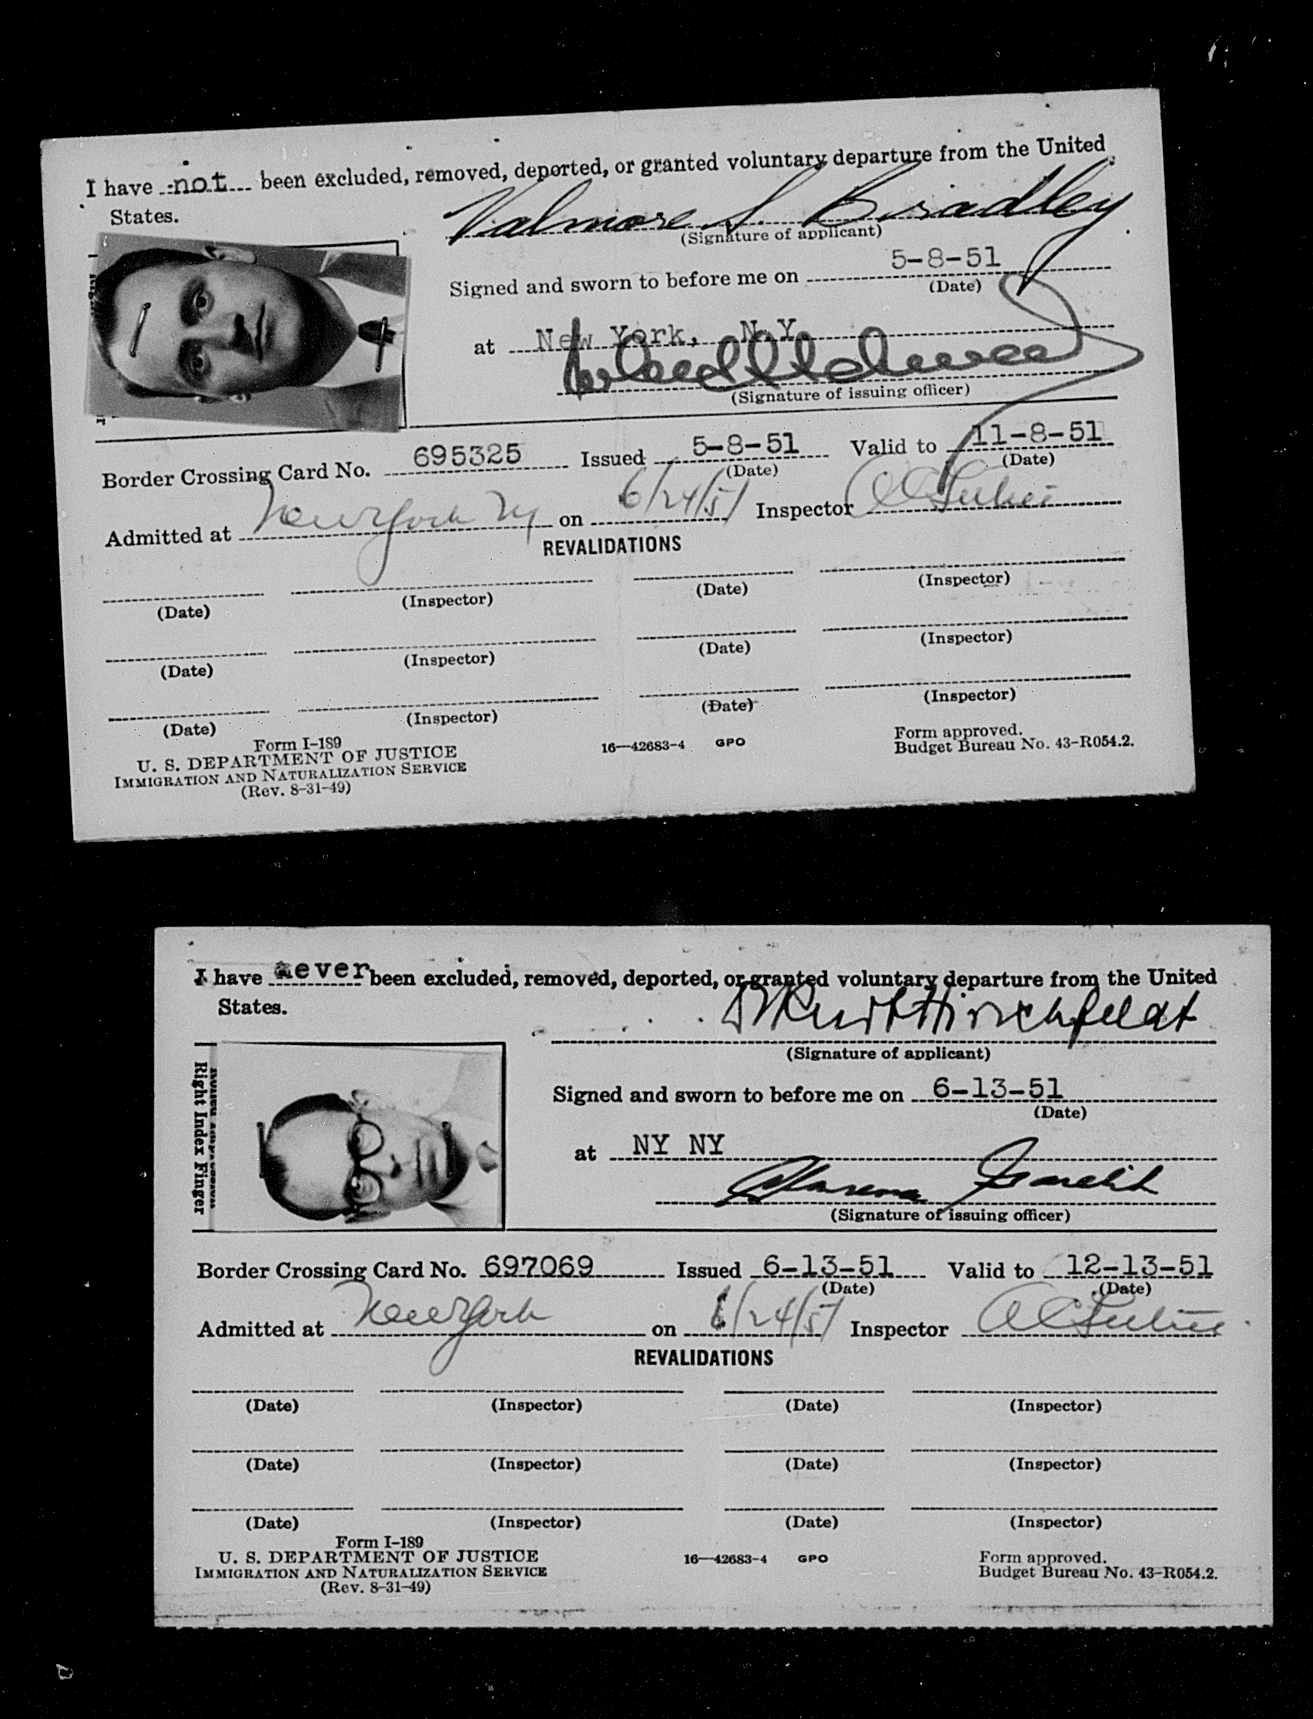 I have not been excluded, removed, deported, or granted voluntary departure from the United
States.
Valmore S. Bradley
(Signature of applicant)
Signed and sworn to before me on 5-8-51
(Date)
at New York, N.Y.
(Signature of issuing officer)
Border Crossing Card No. 695325 Issued 5-8-51 Valid to 11-8-51
(Date) (Date)
Admitted at New York NY on 6/24/51 Inspector
REVALIDATIONS
(Date) (Inspector) (Date) (Inspector)
(Date) (Inspector) (Date) (Inspector)
(Date) (Inspector) (Date) (Inspector)
Form I-189
U. S. DEPARTMENT OF JUSTICE
IMMIGRATION AND NATURALIZATION SERVICE
(Rev. 8-31-49)
16—42683-4 GPO
Form approved.
Budget Bureau No. 43-R054.2.
I have never been excluded, removed, deported, or granted voluntary departure from the United
States.
Kurt Hirschfeldt
(Signature of applicant)
Right Index Finger
Signed and sworn to before me on 6-13-51
(Date)
at NY NY
(Signature of issuing officer)
Border Crossing Card No. 697069 Issued 6-13-51 Valid to 12-13-51
(Date) (Date)
Admitted at New York on 6/24/51 Inspector
REVALIDATIONS
(Date) (Inspector) (Date) (Inspector)
(Date) (Inspector) (Date) (Inspector)
(Date) (Inspector) (Date) (Inspector)
Form I-189
U. S. DEPARTMENT OF JUSTICE
IMMIGRATION AND NATURALIZATION SERVICE
(Rev. 8-31-49)
16—42683-4 GPO
Form approved.
Budget Bureau No. 43-R054.2.